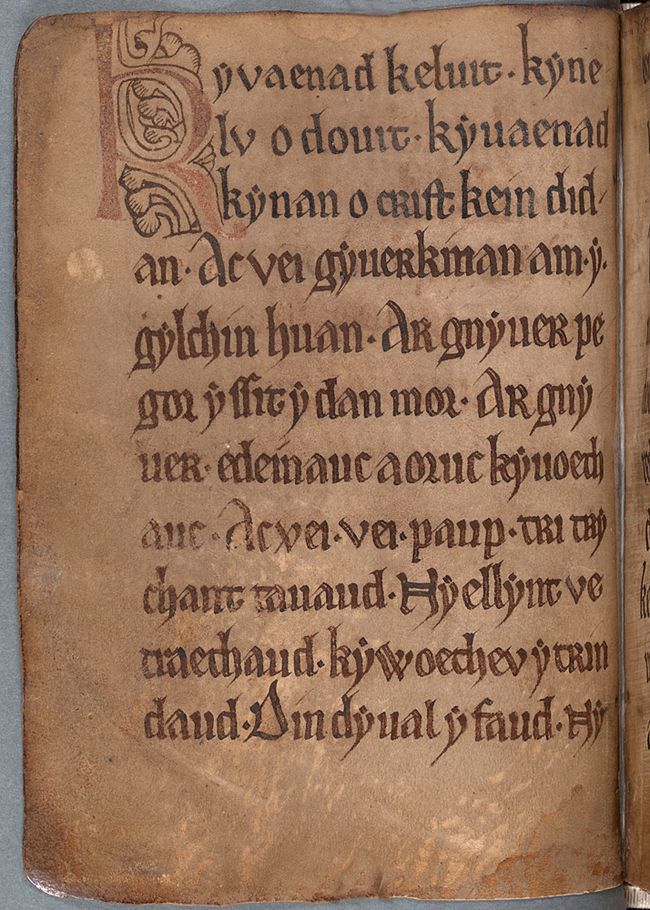 Kẏvaenad keluit. kẏne
lv o douit. kẏuaenad
kẏnan o crist kein did
an. Ac vei gẏuerkinan am. ẏ.
gẏlchin huan. Ar gnẏuer pe
gor ẏssit ẏ dan mor. Ar gnẏ
uer. edeinauc aoruc kẏuoeth
auc. Ac vei. vei. paup. tri trẏ
chant tauaud. Nẏ ellẏnt ve
traethaud. kẏwoethev ẏ trin
daud. Din dẏual ẏ faud. Nẏ